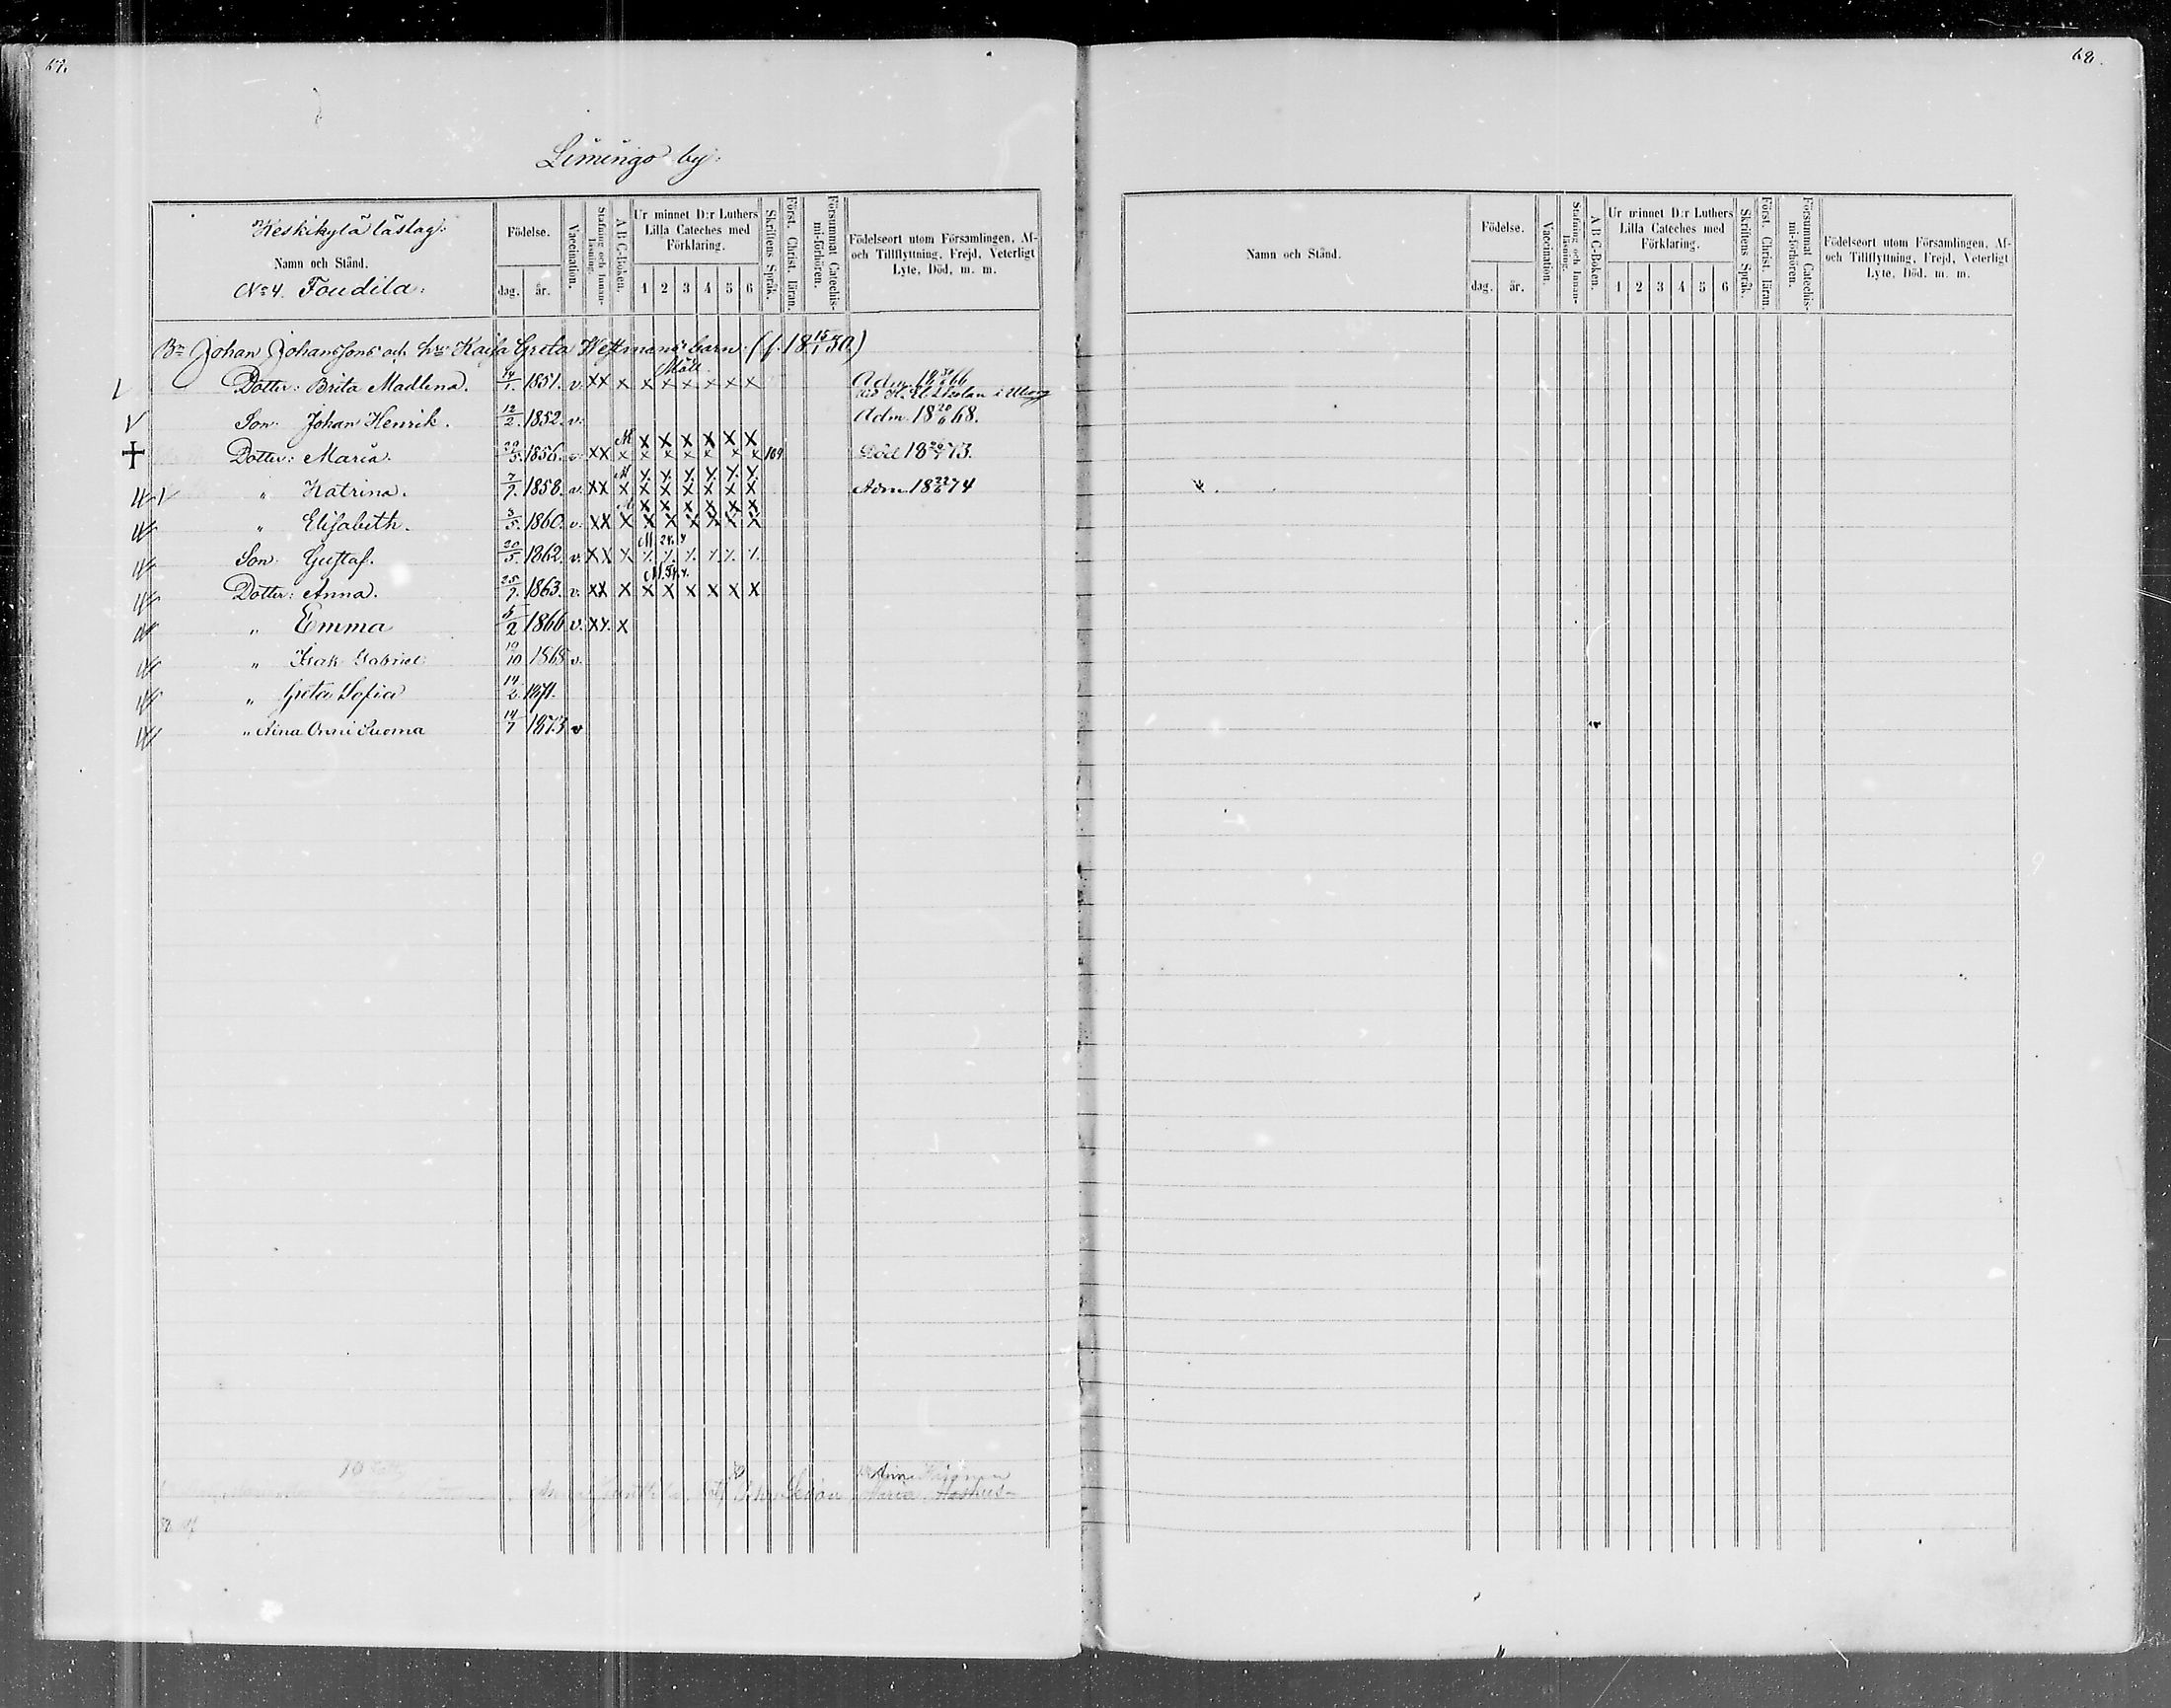 67.
Limingo by:
Keskikylä läslag:
Namn och Stånd.
No 4. Foudila:
Födelse.
dag. år.
Vaccination.
Stafning och Innan-läsning.
A B C-Boken.
Ur minnet D:r Luthers Lilla Cateches med Förklaring.
1 2 3 4 5 6
Skriftens Språk.
Först. Christ. läran.
Försummat Catechis-mi-förhören.
Födelseort utom Församlingen, Af- och Tillflyttning, Frejd, Veterligt Lyte, Död, m. m.
Bn Johan Johansons och hru Kaisa Greta barn. (f. 18 15/1 50.)
Dotter: Brita Madlena. 1851. v. XX X X X X X X X
Son: Johan Henrik. 12/2. 1852. v. Adm. 18 20/6 68.
Dotter: Maria. 1856. v. XX X X X X X X X 109 Död 18 73.
" Katrina. 7/7. 1858. v. XX X X X X X X X Adm. 18 74
" Elisabeth. 3/5. 1860. v. XX X X X X X X X
Son Gustaf. 20/5 1862. v. XX X
Dotter: Anna. 25/7. 1863. v. XX X X X X X X X
" Emma 5/2 1866 v. XX. X
" Isak Gabriel 10 1868 v.
" Greta Sofia 14/2. 1871.
" Aina Onni Suoma 14/7 1873 v
68.
Namn och Stånd.
Födelse.
dag. år.
Vaccination.
Stafning och Innan-läsning.
A B C-Boken.
Ur minnet D:r Luthers Lilla Cateches med Förklaring.
1 2 3 4 5 6
Skriftens Språk.
Först. Christ. läran.
Försummat Catechis-mi-förhören.
Födelseort utom Församlingen, Af- och Tillflyttning, Frejd, Veterligt Lyte, Död. m. m.